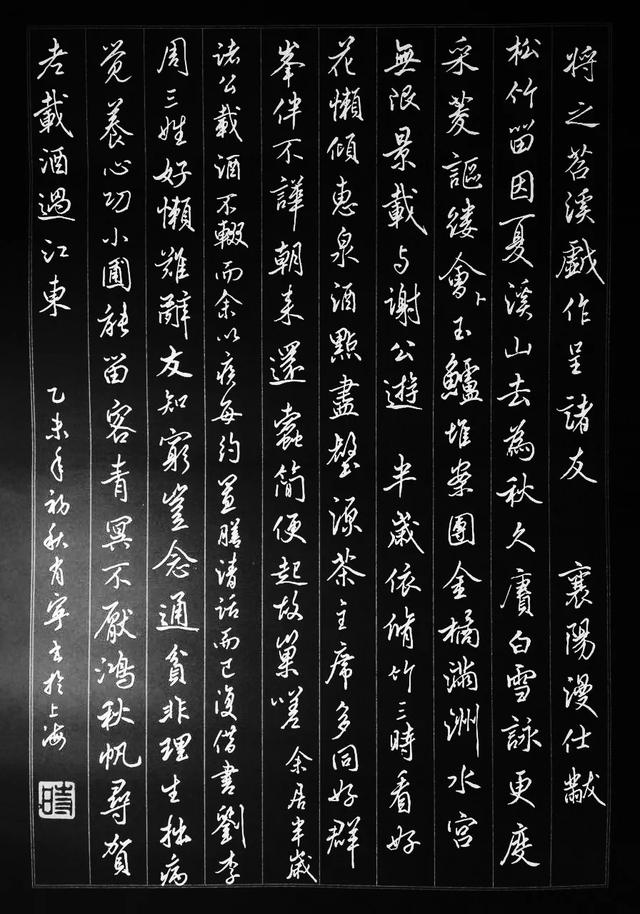 将之苕溪戲作呈諸友 襄陽漫仕黻
松竹留因夏溪山去為秋久賡白雪詠更度
采菱謳縷會卜玉鱸堆案團金橘滿洲水宮
無限景載与謝公遊 半歲依脩竹三時看好
花懶傾惠泉酒點盡壑源茶主席多同好群
峯伴不譁朝来還蠹簡便起故巢嗟 余居半歲
諸公載酒不輟而余以疾每約置膳清話而已復借書劉李
周三姓好懶難辭友知窮豈念通貧非理生拙病
覺養心功小圃能留客青冥不厭鴻秋帆尋賀
老載酒過江東 乙未年初秋肖寧書於上海
時